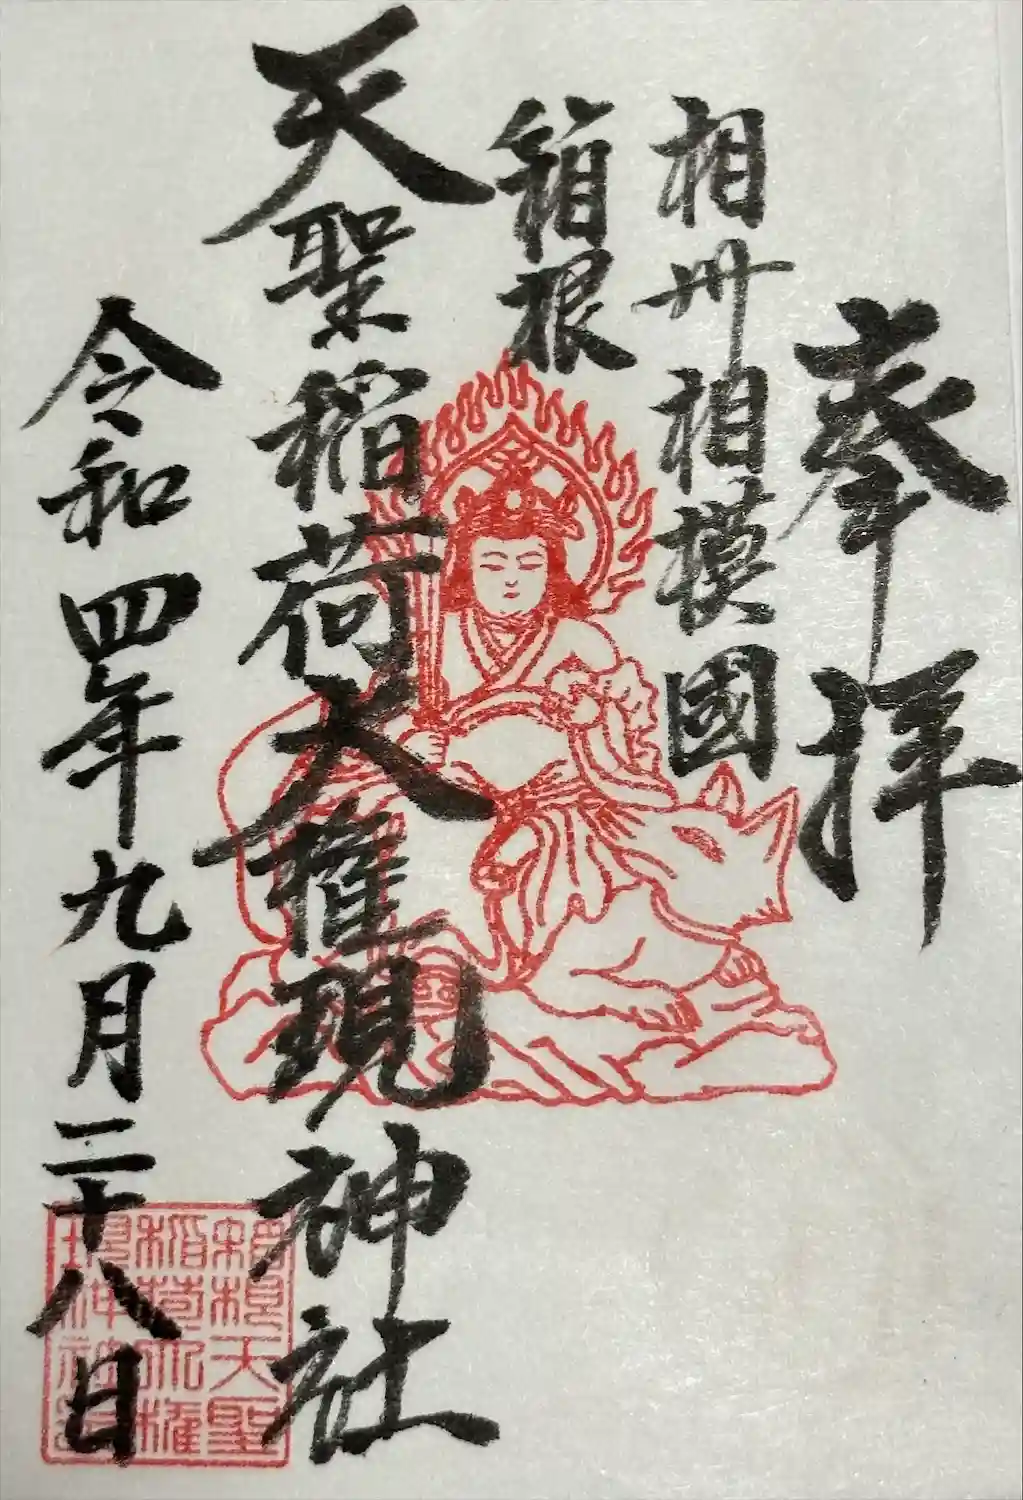 奉拝
相州相模國
箱根
天聖稲荷大権現神社
令和四年九月二十八日
箱根天聖
稲荷大権
現神社